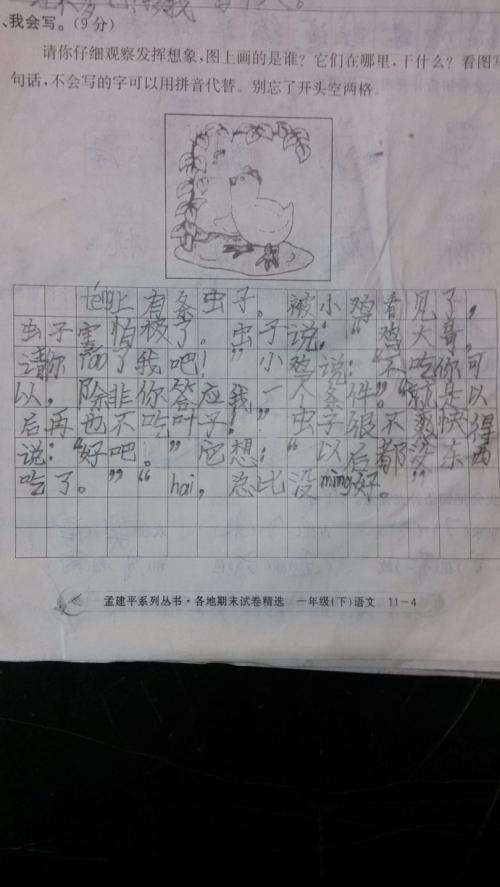 、我会写。(9分)
请你仔细观察发挥想象,图上画的是谁?它们在哪里,干什么?看图写
句话,不会写的字可以用拼音代替。别忘了开头空两格。
地上有条虫子。被小鸡看见了,
虫子害怕极了。虫子说:“鸡大哥,
请你了我吧!”小鸡说:“不吃你可
以,除非你答应我一个条件。”就是以
后再也不吃叶子!”虫子很不爽快得
说:“好吧。”它想:“以后都没东西
吃了。”“hai,总比没mìng好。”
孟建平系列丛书·各地期末试卷精选 一年级(下)语文 11-4